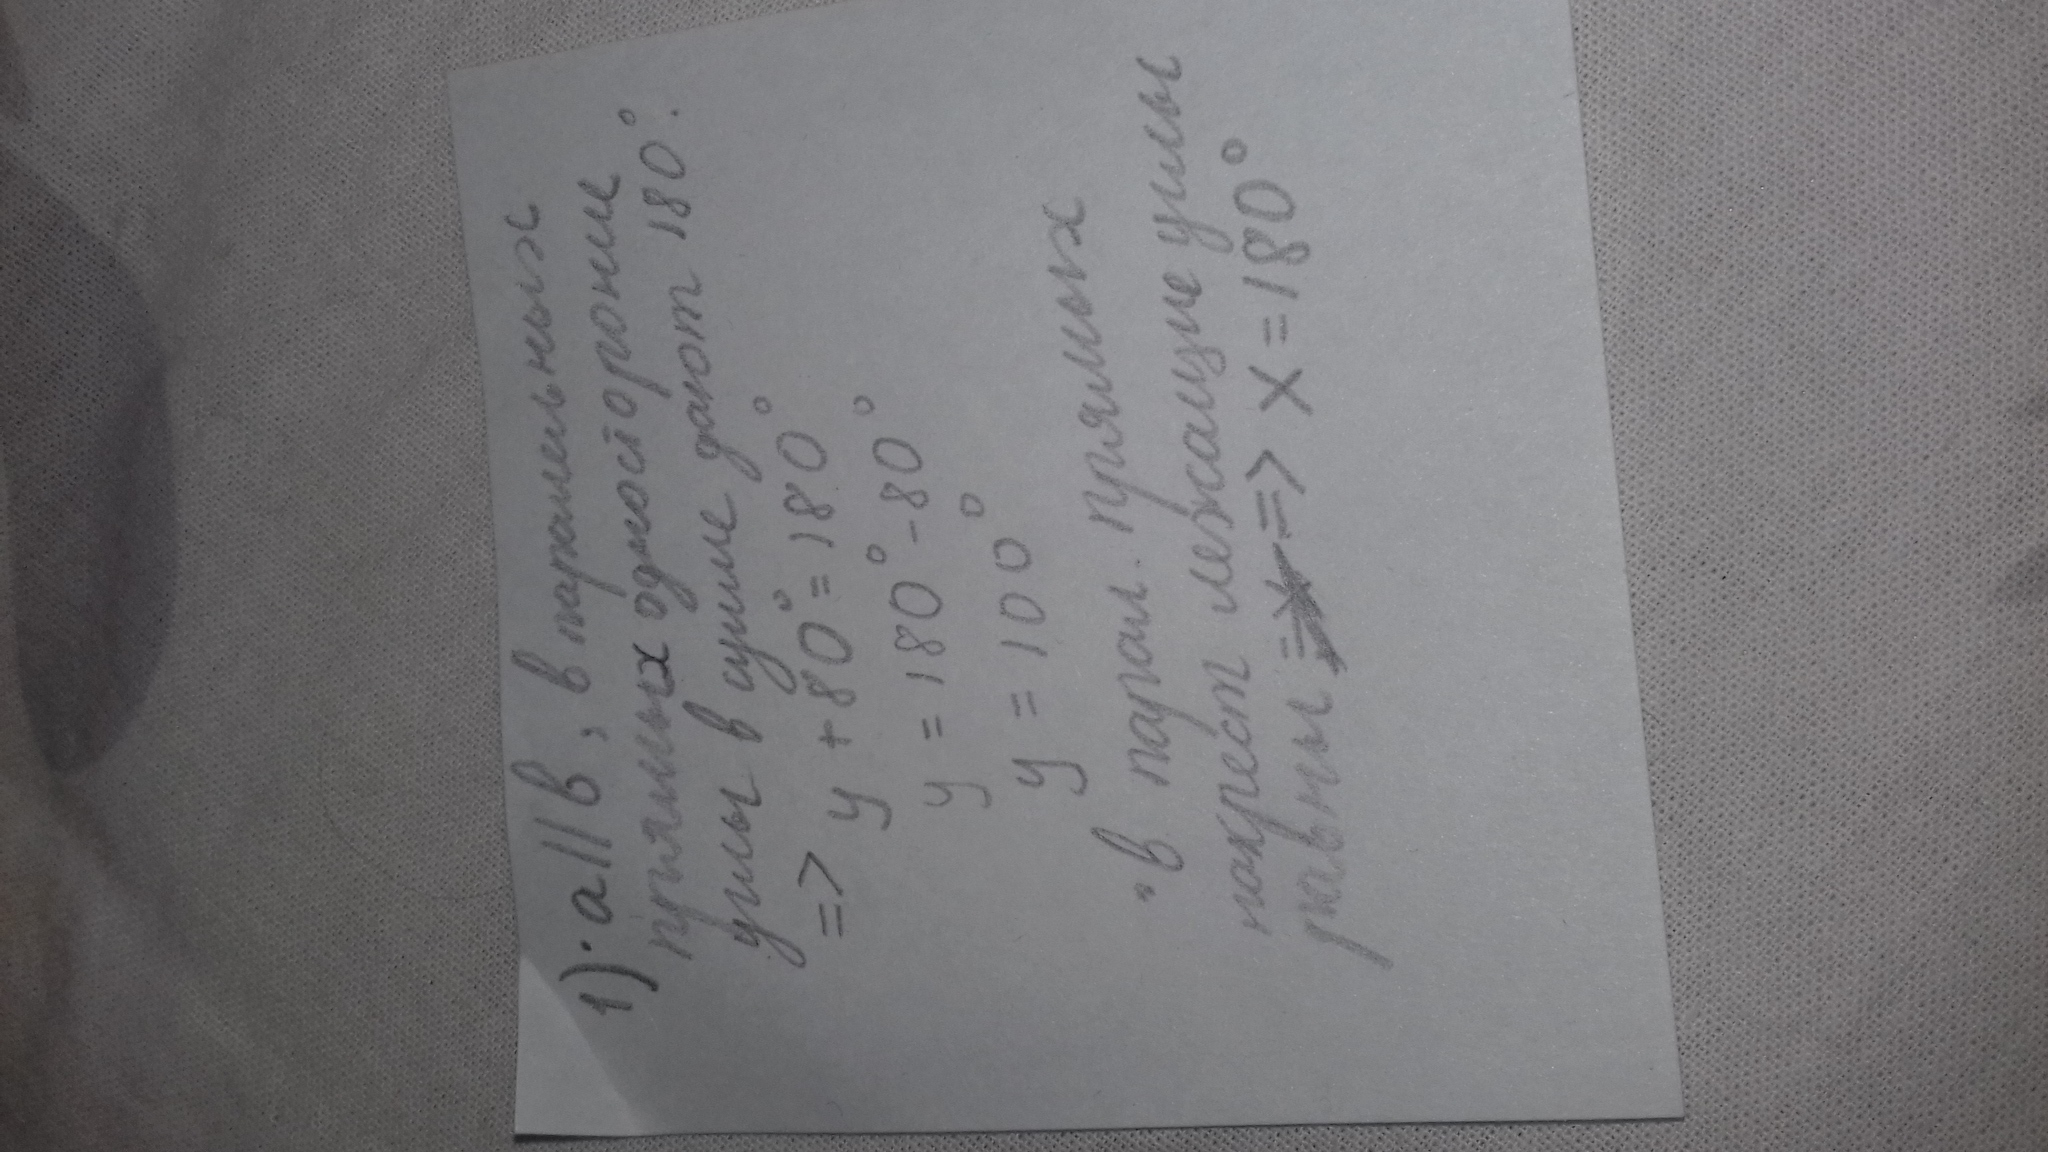 1)·a||в, в паралельных
прямых односторонии
углы в сумме дают 180°.
=> y + 80° = 180°
y = 180° - 80°
y = 100°
·в парал. прямых
накрест лежащие углы
равны => x = 180°